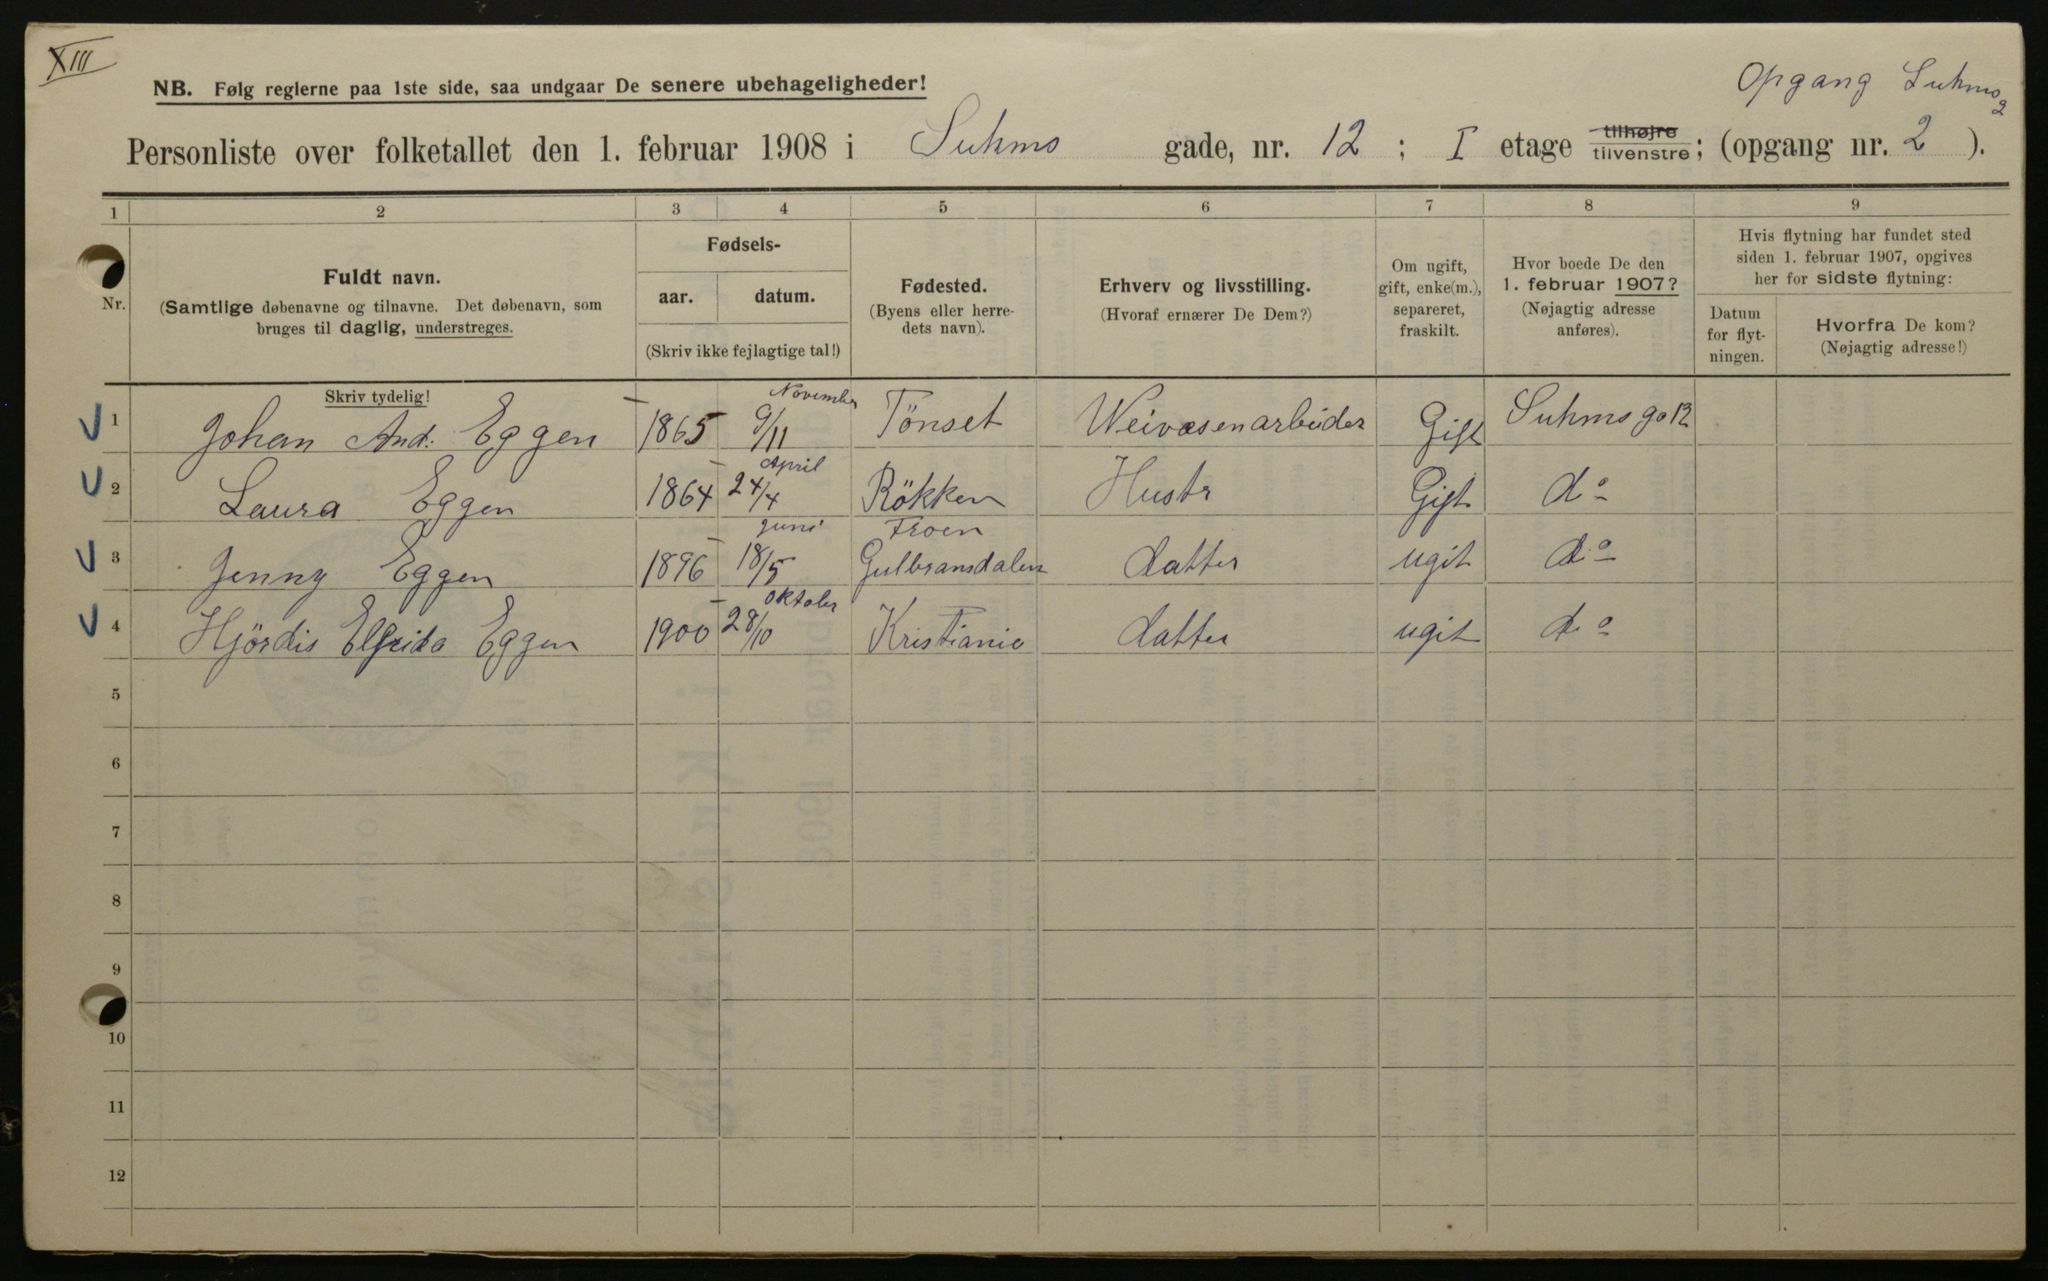 XIII
NB. Følg reglerne paa 1ste side, saa undgaar De senere ubehageligheder!
Opgang Suhms
2
Personliste over folketallet den 1. februar 1908 i Suhms gade, nr. 12 ; I etage tilhøjre tilvenstre ; (opgang nr. 2 ).
1 2 3 4 5 6 7 8 9
Nr.
Fuldt navn.
(Samtlige døbenavne og tilnavne. Det døbenavn, som
bruges til daglig, understreges.
Skriv tydelig!
Fødsels-
aar. datum.
(Skriv ikke fejlagtige tal!)
Fødested.
(Byens eller herre-
dets navn).
Erhverv og livsstilling.
(Hvoraf ernærer De Dem?)
Om ugift,
gift, enke(m.),
separeret,
fraskilt.
Hvor boede De den
1. februar 1907?
(Nøjagtig adresse
anføres).
Hvis flytning har fundet sted
siden 1. februar 1907, opgives
her for sidste flytning:
Datum
for flyt-
ningen.
Hvorfra De kom?
(Nøjagtig adresse!)
November
1 Johan And: Eggen 1865 9/11 Tönset Weivæsenarbeider Gift Suhms ga 12
April
2 Laura Eggen 1864 24/4 Rökken Hustr Gift do
Juni Froen
3 Jenny Eggen 1896 18/5 Gulbransdalen datter ugit do
Oktober
4 Hjördis Elfrida Eggen 1900 28/10 Kristiania datter ugit do
5
6
7
8
9
10
11
12